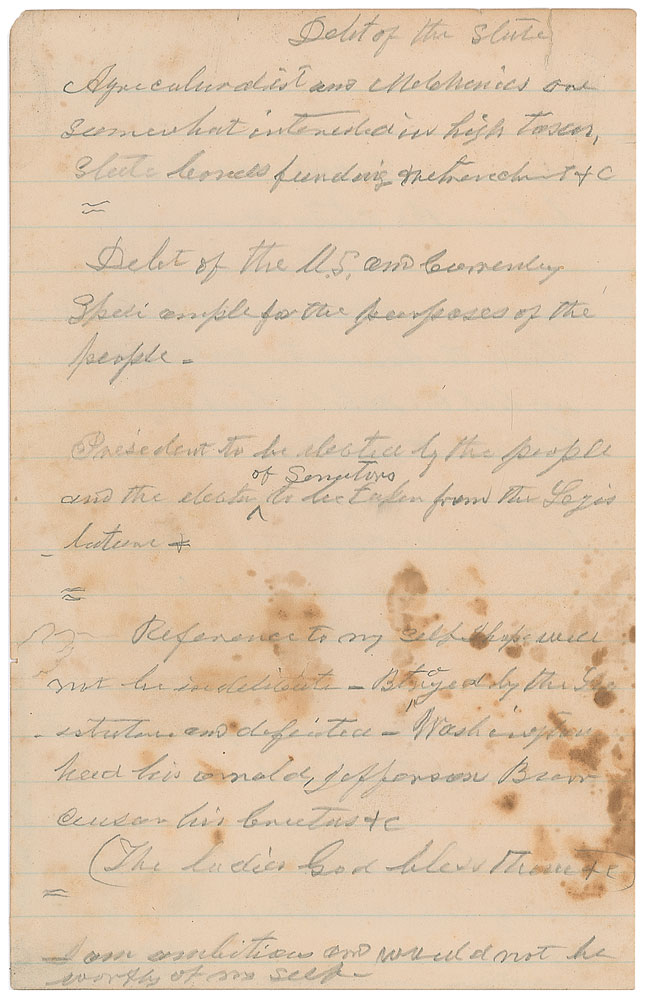 Debt of the State
Agriculturalist and Mechanics are
somewhat interested in high taxes,
State bonds funding retrenchment &c
=
Debt of the U.S. and Currency
ample for the purposes of the
people -
President to be elected by the people
of Senators
and the to be taken from the Legis
- lature &
=
Reference to my self I hope will
not be indelicate - Betrayed by the Leg
- islature and defeated - Washington
had his arnold, jefferson Burr
Ceusar his Brutus &c
(The ladies God bless them &c)
=
I am ambitious and would not be
worthy of my self